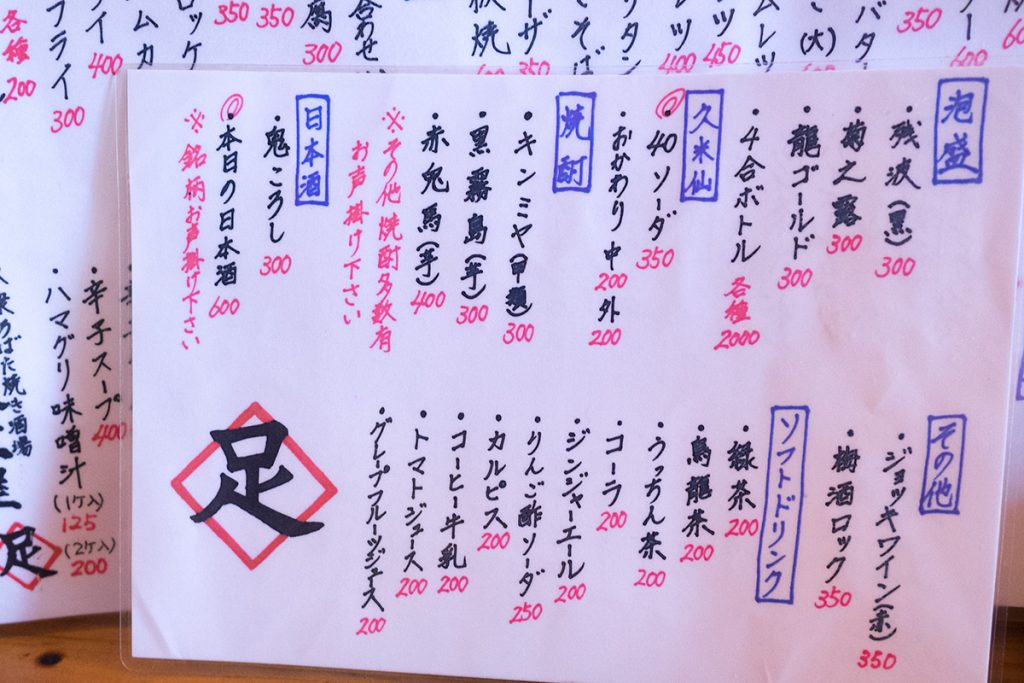 泡盛
・残波(黒)
300
・菊之露
300
・龍ゴールド
300
・4合ボトル
各種
2000
久米仙
・40ソーダ
350
・おかわり 中
200
外
200
焼酎
・キンミヤ(甲類)
300
・黒霧島(芋)
300
・赤兎馬(芋)
400
※その他焼酎多数有
お声掛け下さい
日本酒
・鬼ころし
300
・本日の日本酒
600
※銘柄お声掛け下さい
その他
・ジョッキワイン(赤)
350
・梅酒ロック
350
ソフトドリンク
・緑茶
200
・烏龍茶
200
・うっちん茶
200
・コーラ
200
・ジンジャーエール
200
・りんご酢ソーダ
250
・カルピス
200
・コーヒー牛乳
200
・トマトジュース
200
・グレープフルーツジュース
200
足
各種
200
フライ
300
400
350
350
300
合わせ
焼
350
400
450
(大)
バター
350
600
・辛子スープ
400
・ハマグリ味噌汁
(1ケ入)
125
(2ケ入)
200
ろばた焼き酒場
足